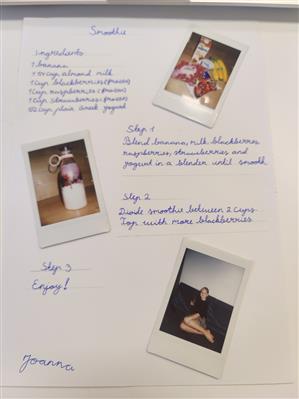 Smoothie
Ingredients
1 banana
1 1/4 cup almond milk
1 cup blackberries (frozen)
1 cup raspberries (frozen)
1 cup strawberries (frozen)
1/2 cup plain Greek yogurt
Step 1
Blend banana, milk, blackberries
raspberries, strawberries and
yogurt in a blender until smooth
Step 2
Divide smoothie between 2 cups.
Top with more blackberries
Step 3
Enjoy!
Joanna